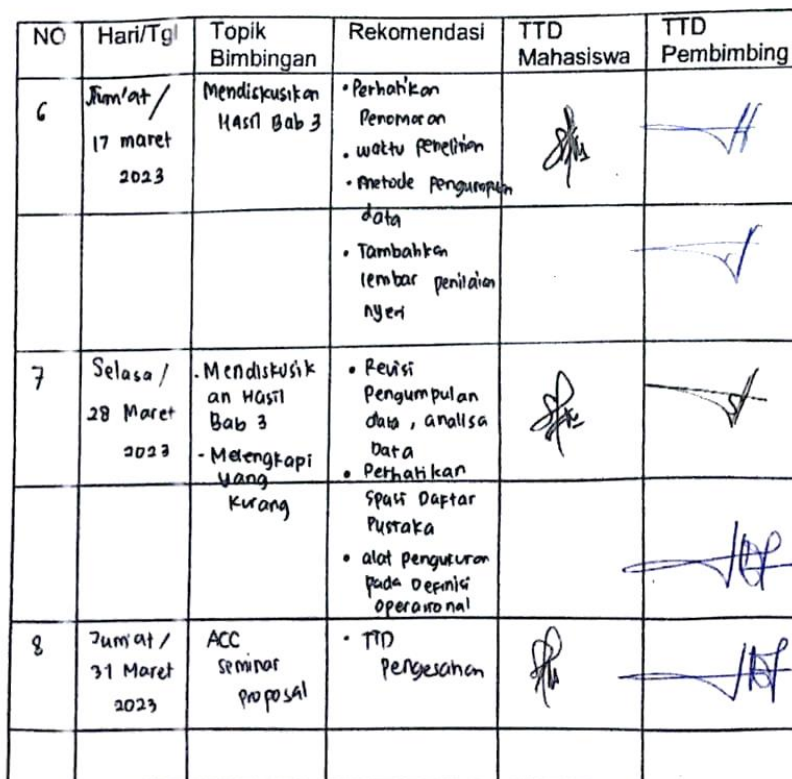 NO Hari/Tgl Topik Bimbingan Rekomendasi TTD Mahasiswa TTD Pembimbing
6
Jum'at /
17 maret
2023
Mendiskusikan
Hasil Bab 3
• Perhatikan
Penomoran
• waktu penelitian
• metode pengumpulan
data
• Tambahkan
lembar penilaian
nyeri
7
Selasa /
28 Maret
2023
- Mendiskusik
an Hasil
Bab 3
- Melengkapi
yang
kurang
• Revisi
Pengumpulan
data, analisa
Data
• Perhatikan
Spasi Daftar
Pustaka
• alat pengukuran
pada Definisi
operasional
8
Jum'at /
31 Maret
2023
ACC
seminar
proposal
• TTD
Pengesahan